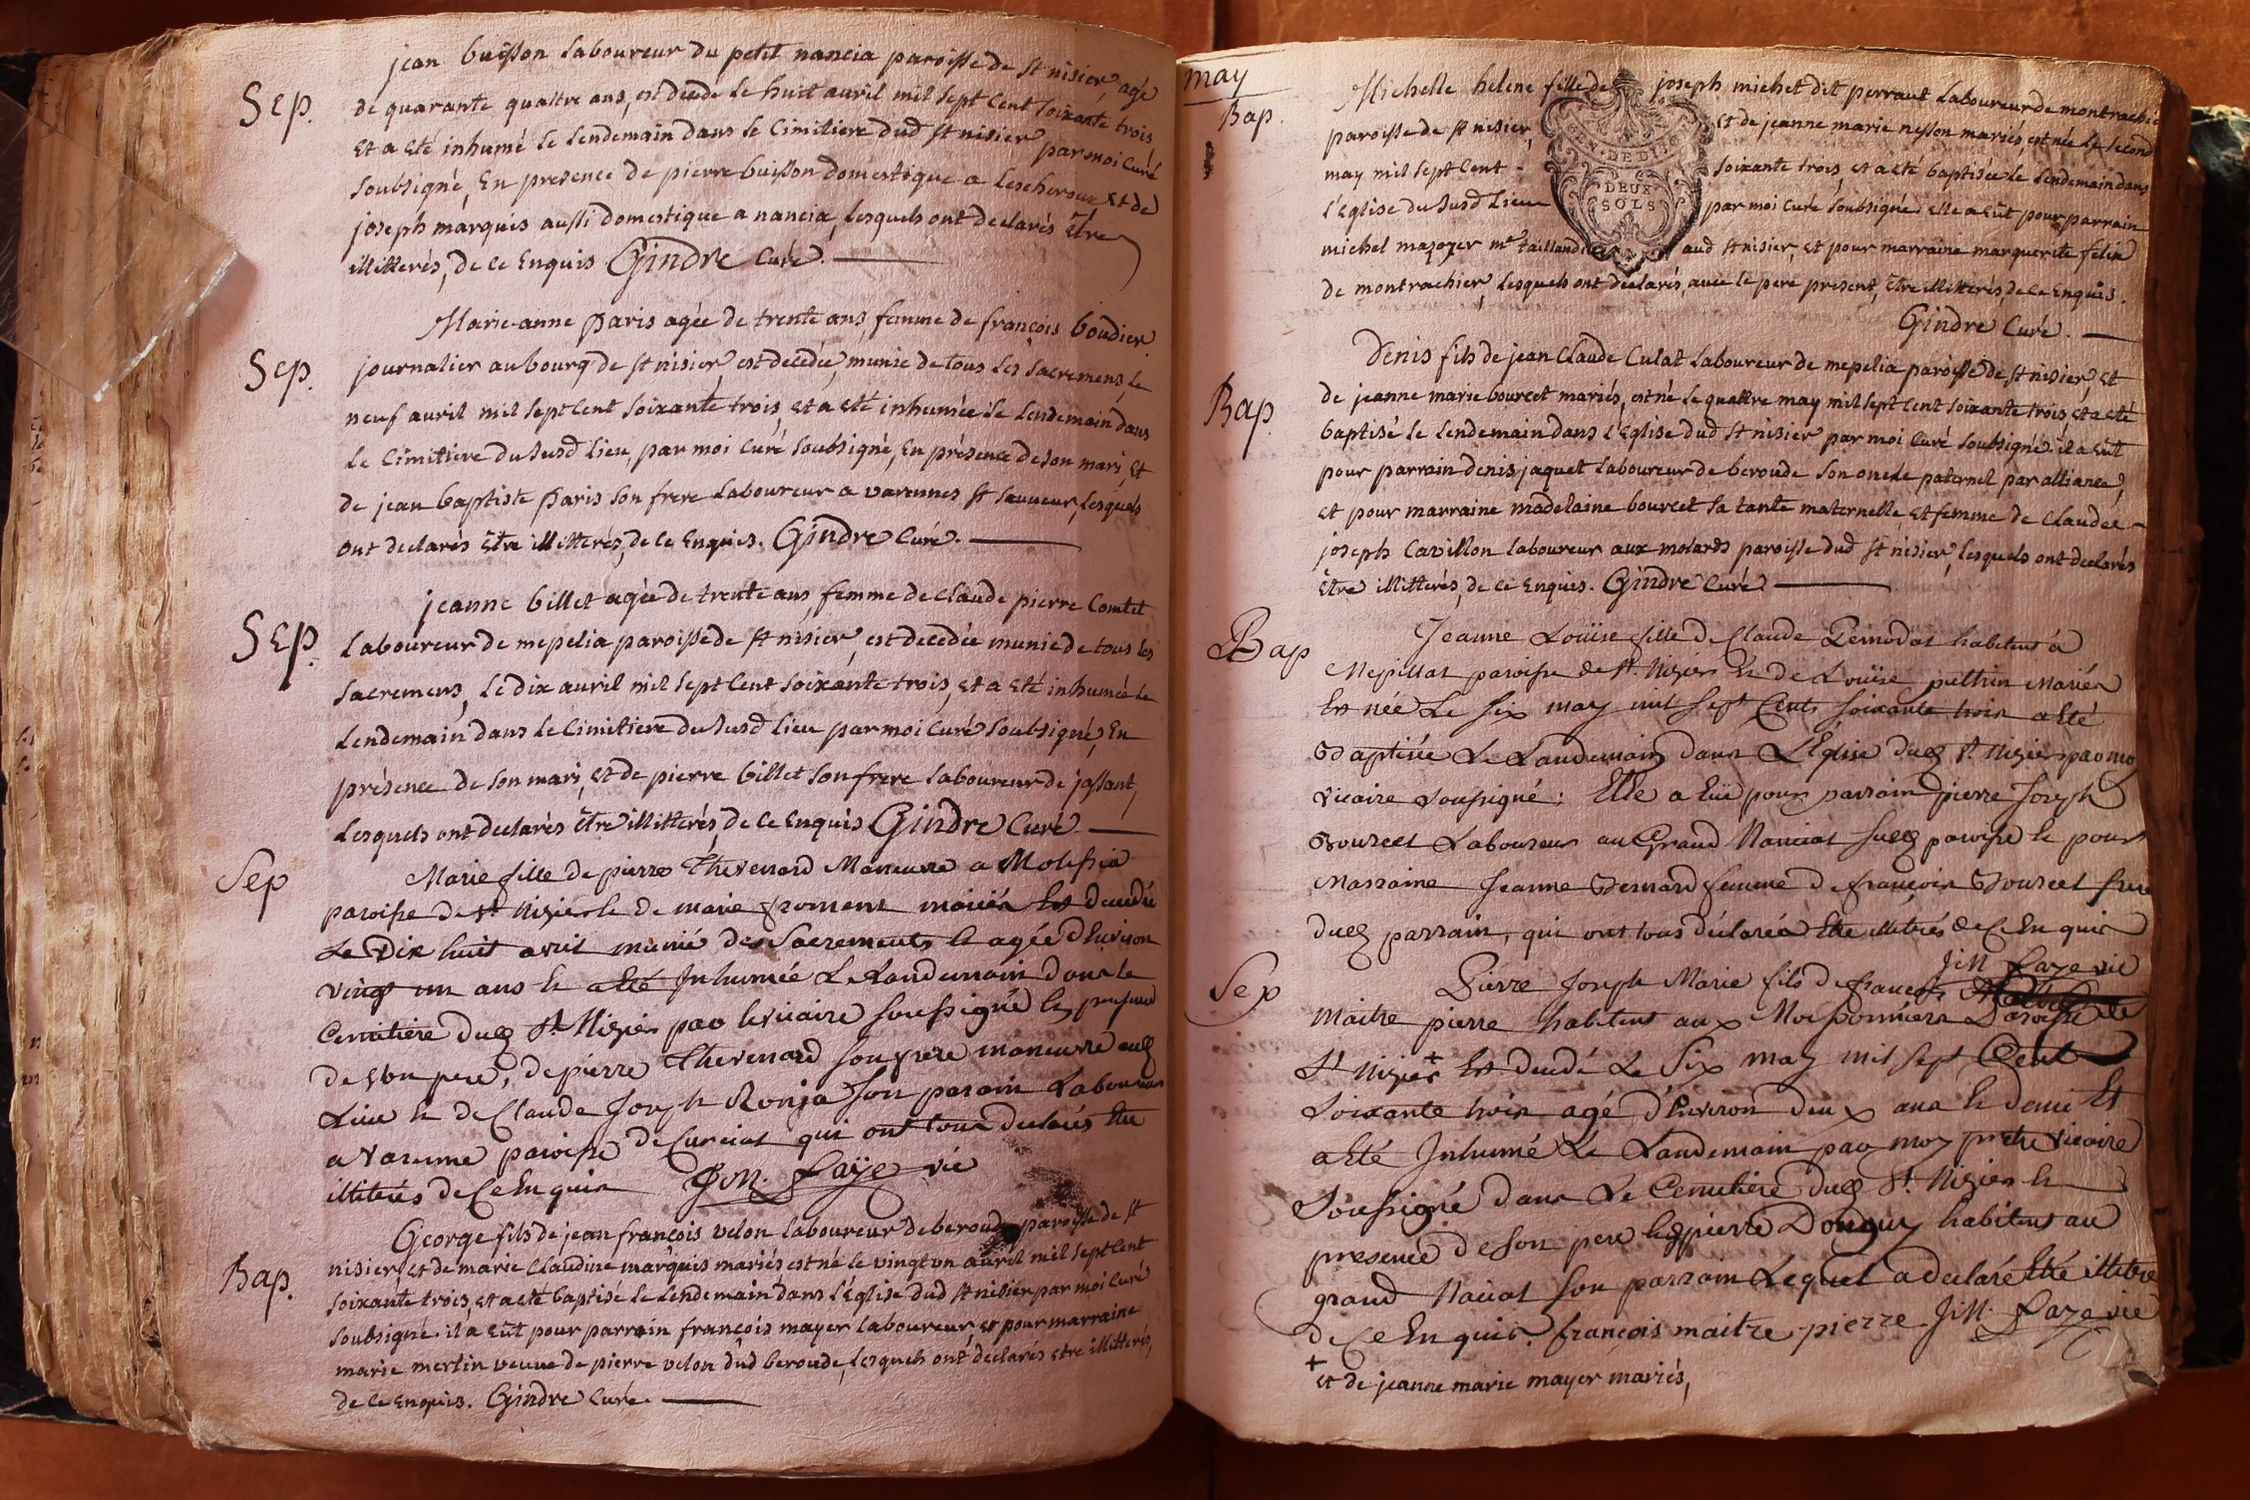 Sep.
jean buisson laboureur du petit nancia paroisse de st nisier agé
de quarante quattre ans, est decedé le huit avril mil sept cent soixante trois
et a eté inhumé le lendemain dans le cimitiere dud st nisier par moi curé
soubsigné, en presence de pierre buisson domestique a lescheroux et de
joseph marquis aussi domestique a nancia, lesquels ont declarés être
illitterés, de ce enquis. Gindre curé.
Sep.
Marie anne paris agée de trente ans, femme de françois boudier
journalier au bourg de st nisier, est decedée, munie de tous les sacremens, le
neuf avril mil sept cent soixante trois, et a eté inhumée le lendemain dans
le cimitiere du susd lieu, par moi curé soubsigné, en présence de son mari, et
de jean baptiste paris son frere laboureur a varennes st sauveur, lesquels
ont declarés être illitterés, de ce enquis. Gindre curé.
Sep.
jeanne billet agée de trente ans, femme de claude pierre comtet
laboureur de mepelia paroisse de st nisier, est decedée munie de tous les
sacremens, le dix avril mil sept cent soixante trois, et a eté inhumée le
lendemain dans le cimitiere du susd lieu par moi curé soubsigné, en
présence de son mari, et de pierre billet son frere laboureur de jassant,
lesquels ont declarés être illitterés, de ce enquis Gindre curé.
Sep
Marie fille de pierre Thevenard Maneuvre a Molissia
paroisse de st Nizier et de marie froment mariés est decedée
Le Dix huit avril munie des Sacrements et agée d'environ
vingt un ans et a eté Inhumée Le Landemain dans le
Cemitiere dud St. Nizier par le vicaire soussigné en presence
de son pere, de pierre Thevenard son frere maneuvre aud
Lieu et de Claude Joseph Ronja son parain Laboureur
a Varenne paroisse de Curciat qui ont tous declarés etre
illiterés de Ce Enquis J.M. Laÿe vic
Bap.
George fils de jean françois velon laboureur de beroude paroisse de st
nisier, et de marie claudine marquis mariés est né le vingt un avril mil sept cent
soixante trois, et a eté baptisé le lendemain dans l'église dud st nisier par moi curé
soubsigné. il a eût pour parrain françois mayer laboureur, et pour marraine
marie merlin veuve de pierre velon dud beroude, lesquels ont declarés etre illitterés,
de ce enquis. Gindre curé.
may
Bap.
Michelle helene fille de joseph michet dit perraut laboureur de montrachier
paroisse de st nisier, et de jeanne marie nesson mariés, est née le second
may mil sept cent soixante trois, et a eté baptisée le lendemain dans
l'église du susd lieu par moi curé soubsigné. elle a eût pour parrain
michel mazoyer me taillandier aud st nisier, et pour marraine marguerite felix
de montrachier, lesquels ont declarés, avec le pere présent, être illitterés de ce enquis.
Gindre curé.
GEN. DE DIJON
DEUX
SOLS
Bap.
Denis fils de jean claude culat laboureur de mepelia paroisse de st nisier, et
de jeanne marie bourcet mariés, est né le quattre may mil sept cent soixante trois, et a eté
baptisé le lendemain dans l'église dud st nisier par moi curé soubsigné. il a eût
pour parrain denis jaquet laboureur de beroude son oncle paternel par alliance,
et pour marraine madelaine bourcet sa tante maternelle, et femme de claude
joseph cavillon laboureur aux molards paroisse dud st nisier, lesquels ont declarés
être illitterés, de ce enquis. Gindre curé
Bap
Jeanne Loüise fille de Claude Pernodat habitent à
Mepillat paroisse de St. Nizier et de Loüise puthin Mariés
Est née Le six may mil sept Cent soixante trois a eté
Baptisée Le Landemain dans L'Eglise dud St. Nizier par moy
vicaire soussigné; Elle a Eüe pour parrain pierre Joseph
Bourcet Laboureur au Grand Nanciat susd paroisse et pour
Marraine Jeanne Bernard femme de françois Bourcet frere
dud parrain, qui ont tous déclarés etre illiterés de Ce Enquis
J.M. Laye vic
Sep
Pierre Joseph Marie fils de françois
Maitre pierre habitent aux Moissonniers Paroisse de
St Nizier + Est decedé Le Six may mil sept Cent
Soixante trois agé d'Environ deux ans et demi Et
a eté Inhumé Le Landemain par moy pretre vicaire
Soussigné dans Le Cemitiere dud St. Nizier en
presence de son pere et pierre Donguy habitent au
grand Naciat son parrain Lequel a declaré etre illitere
de Ce Enquis. françois maitre-pierre J.M. Laye vic
+
et de jeanne marie mayer mariés,